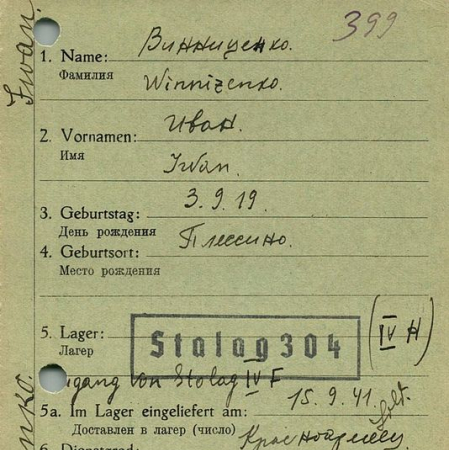 399
Iwan.
1. Name: Винниценко.
Фамилия Winnizenko.
2. Vornamen: Иван.
Имя Iwan.
3. Geburtstag: 3.9.19.
День рождения
4. Geburtsort: Плессино.
Место рождения
5. Lager: Stalag 304 (IV H)
Лагер
Zugang von Stalag IV F
5a. Im Lager eingeliefert am: 15.9.41.
Доставлен в лагер (число)
6. Dienstgrad: Красноармеец